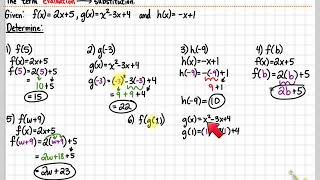 The term evaluation substitution.
Given: f(x)=2x+5, g(x)=x²-3x+4 and h(x)=-x+1
Determine:
1) f(5)
f(x)=2x+5
f(5)=2(5)+5
=15
2) g(-3)
g(x)=x²-3x+4
g(-3)=(-3)²-3(-3)+4
=9+9+4
=22
3) h(-9)
h(x)=-x+1
h(-9)=-(-9)+1
9+1
h(-9)=10
4) f(b)
f(x)=2x+5
f(b)=2(b)+5
=2b+5
5) f(w+9)
f(x)=2x+5
f(w+9)=2(w+9)+5
=2w+18+5
=2w+23
6) f(g(1))
g(x)=x²-3x+4
g(1)=(1
1)+4